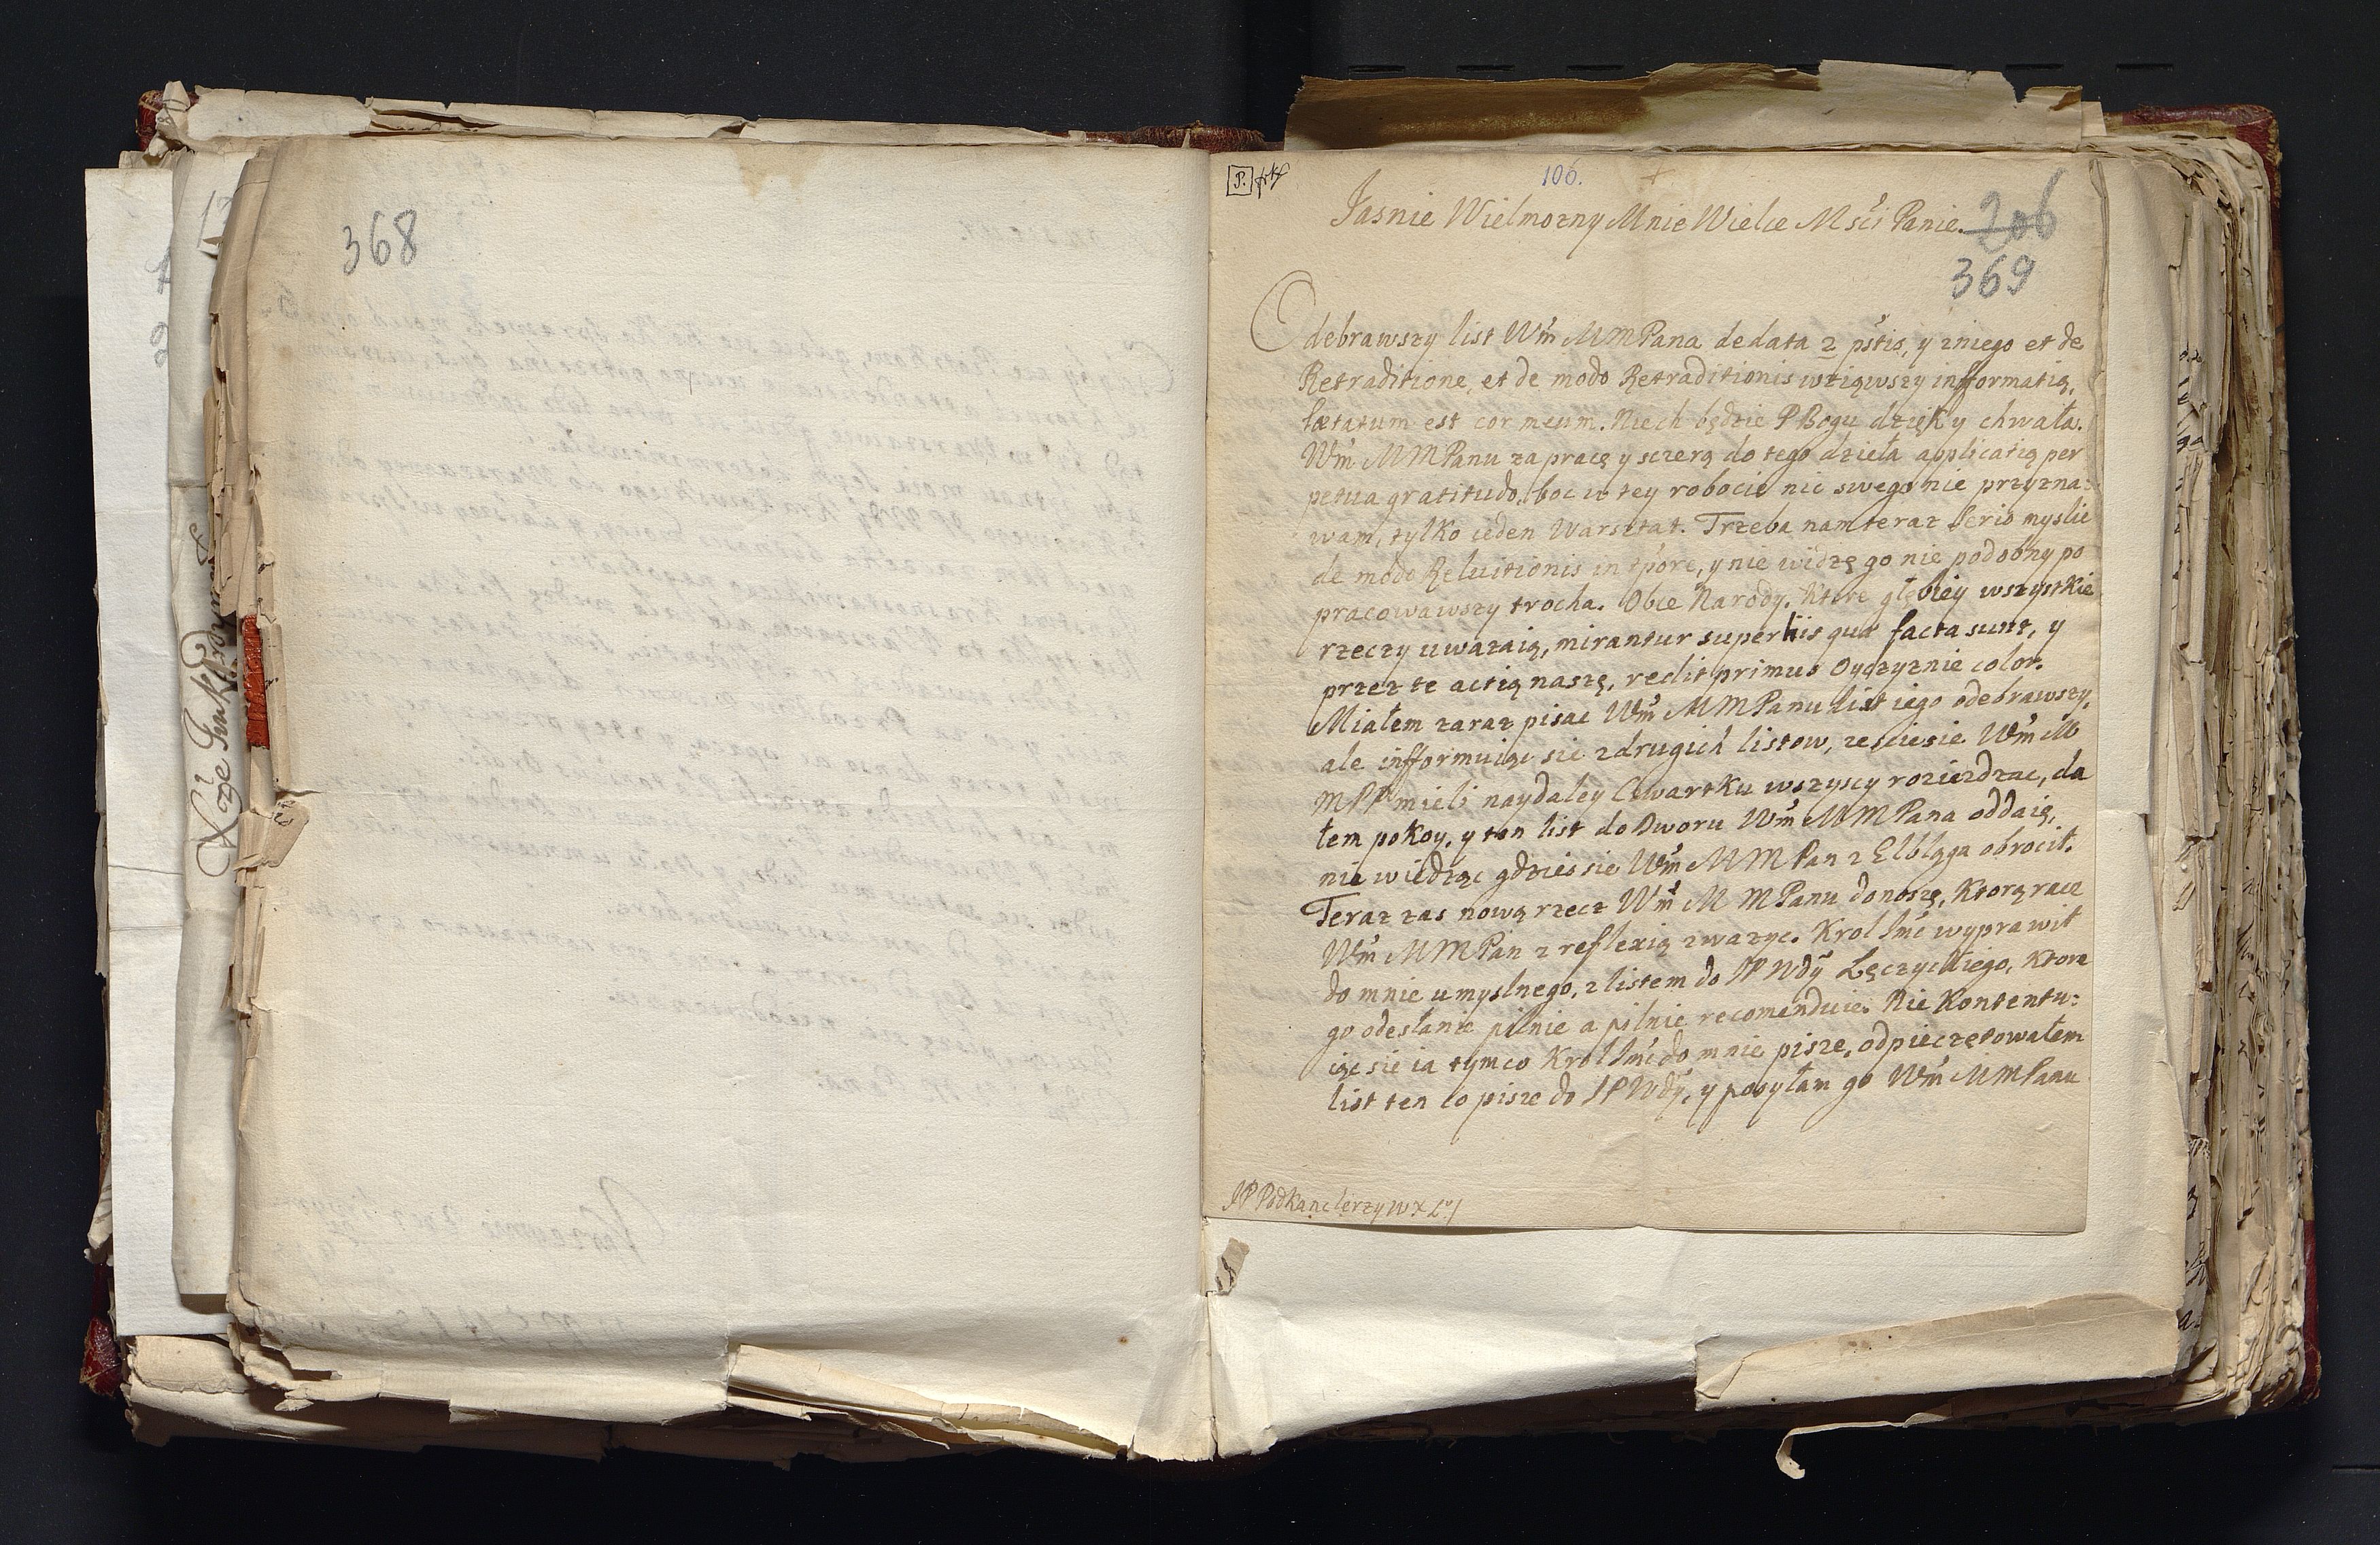 368
Xże
P.
106.
206
369
Jasnie Wielmozny Mnie Wielce Mści Panie.
Odebrawszy list Wm̃ MMPana de data 2 pñtis, y zniego et de
Retraditione, et de modo Retraditionis wziąwszy informatią,
lætatum est cor meum. Niech będzie P Bogu dzięk y chwała.
Wm̃ MMPanu za pracę y sczerą do tego dzieła applicatią per
petua gratitudo, boc w tey robocie nic swego nie przyzna:
wam, tylko ieden Warsztat. Trzeba nam teraz serio myslic
de modo Reluitionis in tp̃ore, y nie widzę go nie podobny po
pracowawszy trocha. Obce Narody, ktore głębiey wszystkie
rzeczy uwazaią, mirantur super iis quæ facta sunt, y
przez te actią naszę, redit primus Oyczyznie color.
Miałem zaraz pisac Wm̃ MMPanu list iego odebrawszy,
ale informuiąc sie z drugich listow, zescie sie Wm̃ M
MPP mieli naydaley Czwartku wszyscy rozieżdzac, da
łem pokoy, y ten list do Dworu Wm̃ MMPana oddaię,
nie wiedząc gdzies sie Wm̃ MMPan z Elbląga obrocił.
Teraz zas nową rzecz Wm̃ MMPanu donoszę, ktorą racz
Wm̃ MMPan z reflexią zwazyc. Krol Jmć wyprawił
do mnie umyslnego, z listem do JP Wdy Lęczyckiego, ktore
go odesłanie pilnie a pilnie recomenduie. Nie kontentu:
iąc sie ia tym co Krol Jmć do mnie pisze, odpieczętowałem
list ten co pisze do JP Wdy, y posyłam go Wm̃ MMPanu
JP Podkanclerzy W X L